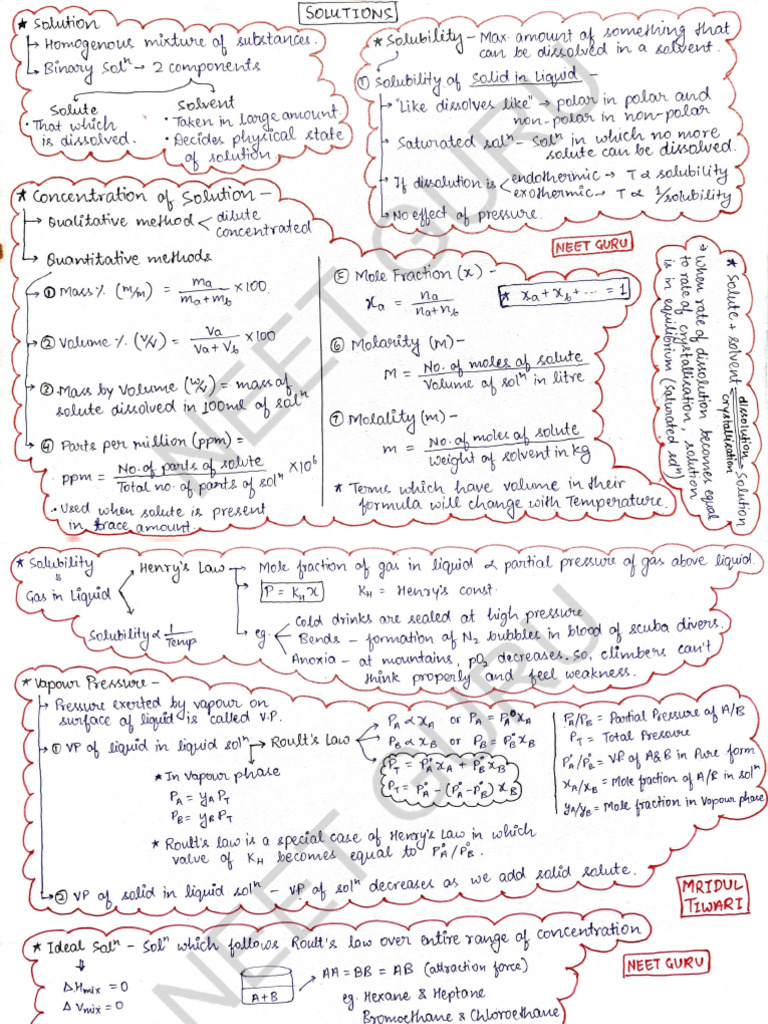 SOLUTIONS
* Solution
→ Homogenous mixture of substances.
→ Binary Solⁿ → 2 components
Solute
• That which
is dissolved.
Solvent
• Taken in large amount
• Decides physical state
of solution.
* Solubility - Max. amount of something that
can be dissolved in a solvent.
① Solubility of Solid in Liquid -
→ "Like dissolves like" → polar in polar and
non-polar in non-polar
→ Saturated solⁿ - Solⁿ in which no more
solute can be dissolved.
→ If dissolution is < endothermic → T ∝ solubility
exothermic → T ∝ 1/solubility
→ No effect of pressure.
NEET GURU
* Concentration of Solution -
→ Qualitative method < dilute
concentrated
→ Quantitative methods
→ ① Mass % (m/m) = ma / (ma + mb) × 100
→ ② Volume % (V/V) = Va / (Va + Vb) × 100
→ ③ Mass by Volume (w/v) = mass of
solute dissolved in 100ml of solⁿ
→ ④ Parts per million (ppm) =
ppm = No. of parts of solute / Total no. of parts of solⁿ × 10⁶
• Used when solute is present
in trace amount.
⑤ Mole Fraction (x) -
xa = na / (na + nb)
* xa + xb + ... = 1
⑥ Molarity (M) -
M = No. of moles of solute / Volume of solⁿ in litre
⑦ Molality (m) -
m = No. of moles of solute / weight of solvent in kg
* Terms which have volume in their
formula will change with Temperature.
* Solute + solvent ⇌ Solution
dissolution
crystallisation
→ When rate of dissolution becomes equal
to rate of crystallisation, solution
is in equilibrium (saturated solⁿ)
* Solubility
Gas in Liquid
Henry's Law → Mole fraction of gas in liquid ∝ partial pressure of gas above liquid.
→ P = K_H x K_H = Henry's const.
→ eg. Cold drinks are sealed at high pressure
Bends - formation of N₂ bubbles in blood of scuba divers.
Anoxia - at mountains, pO₂ decreases. So, climbers can't
think properly and feel weakness.
Solubility ∝ 1/Temp
* Vapour Pressure -
→ Pressure exerted by vapour on
surface of liquid is called V.P.
→ ① VP of liquid in liquid solⁿ
→ Roult's Law
P_A ∝ x_A or P_A = P°_A x_A
P_B ∝ x_B or P_B = P°_B x_B
P_T = P°_A x_A + P°_B x_B
P_T = P°_A - (P°_A - P°_B) x_B
* In Vapour phase
P_A = y_A P_T
P_B = y_B P_T
* Roult's law is a special case of Henry's Law in which
value of K_H becomes equal to P°_A/P°_B.
→ ② VP of solid in liquid solⁿ - VP of solⁿ decreases as we add solid solute.
P_A/P_B = Partial Pressure of A/B
P_T = Total Pressure
P°_A/P°_B = VP of A&B in Pure form
x_A/x_B = Mole fraction of A/B in solⁿ
y_A/y_B = Mole fraction in Vapour phase
MRIDUL
TIWARI
* Ideal Solⁿ - Solⁿ which follows Roult's law over entire range of concentration
ΔH_mix = 0
ΔV_mix = 0
A+B
AA = BB = AB (attraction force)
eg. Hexane & Heptane
Bromoethane & Chloroethane
NEET GURU
NEET GURU
NEET GURU